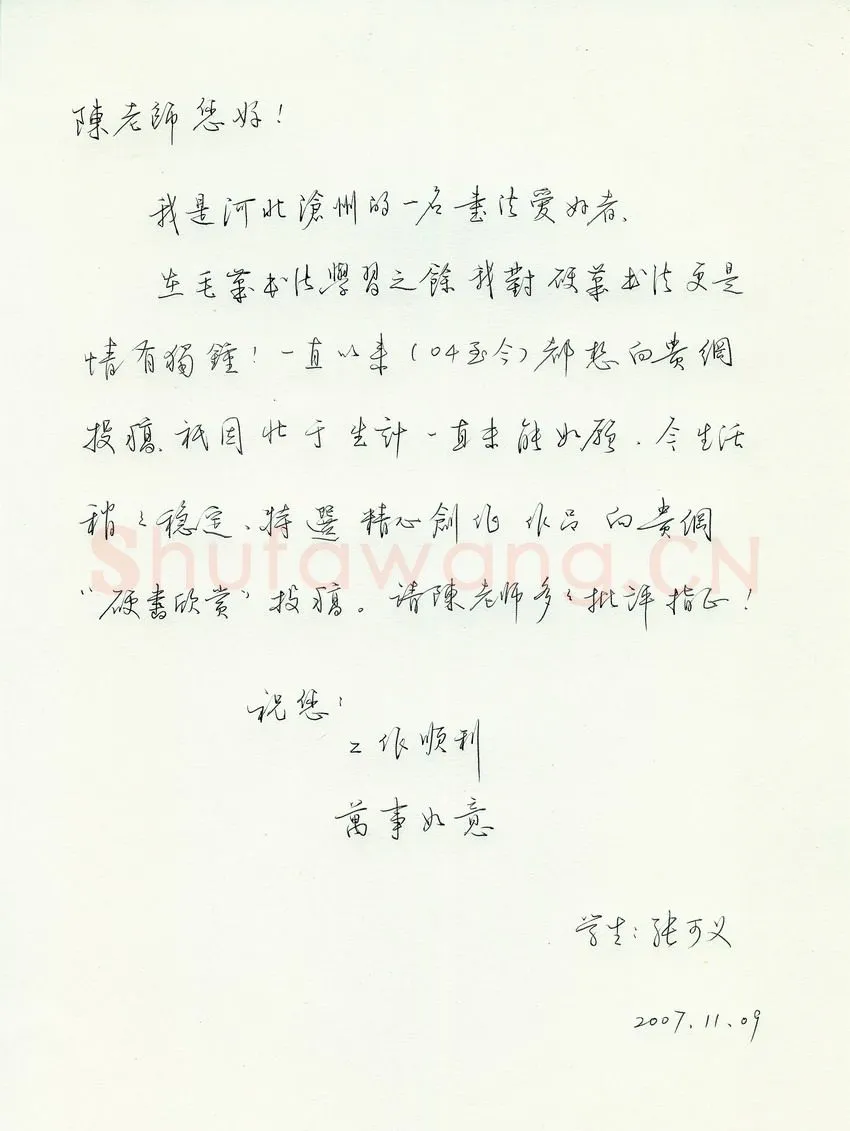 陳老師您好！
我是河北滄州的一名書法愛好者、
在毛筆书法學習之餘我對硬筆书法更是
情有獨鍾！一直以来（04至今）都想向貴網
投稿、祇因忙于生計一直未能如願．今生活
稍〻穩定、特選精心創作作品向貴網
“硬書欣赏”投稿。請陳老师多〻批评指正！
祝您：
工作順利
萬事如意
学生：张可义
2007.11.09
Shufawang.CN